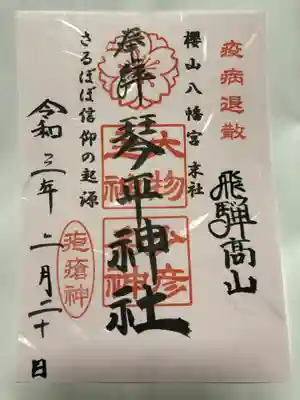 疫病退散
飛騨高山
櫻山八幡宮 末社
奉拝
琴平神社
大物
主神
さるぼぼ信仰の起源
疱瘡神
令和三年二月二十日